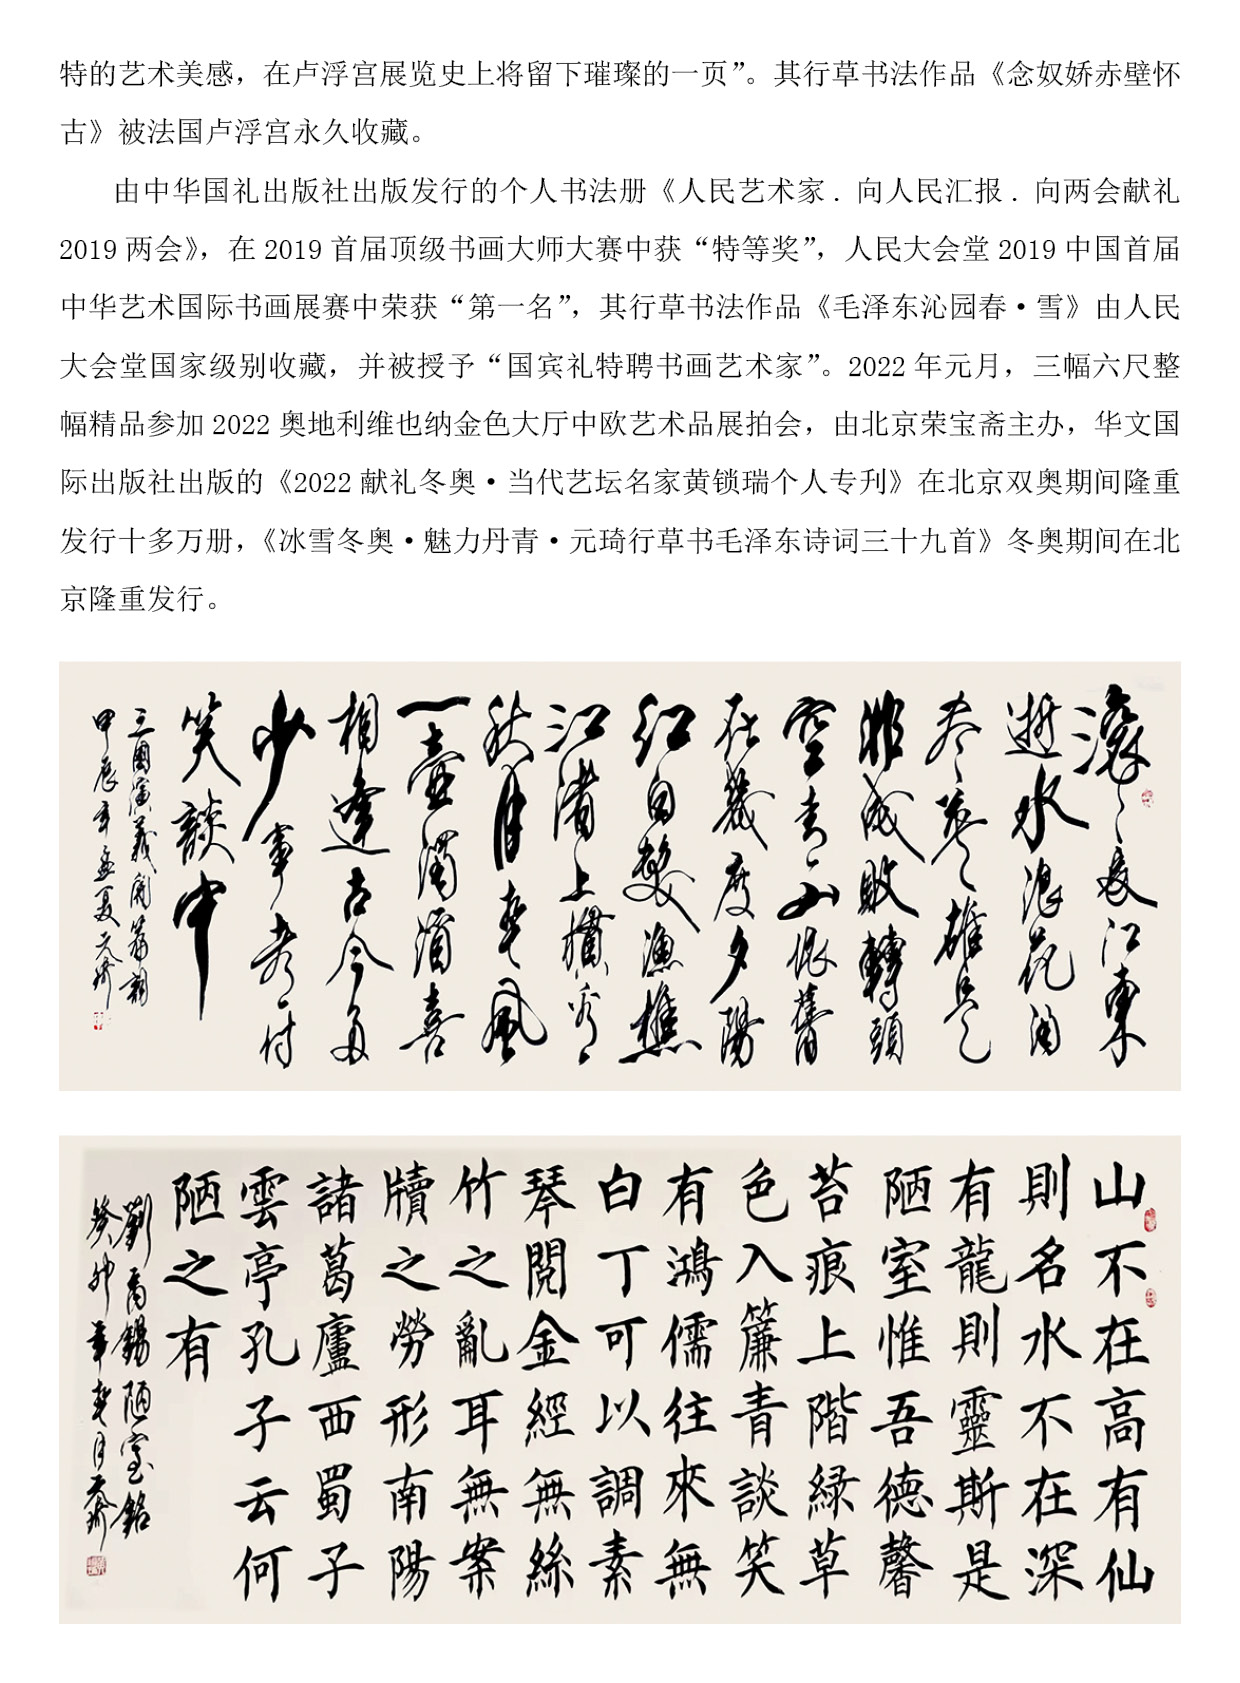 特的艺术美感，在卢浮宫展览史上将留下璀璨的一页”。其行草书法作品《念奴娇赤壁怀
古》被法国卢浮宫永久收藏。
由中华国礼出版社出版发行的个人书法册《人民艺术家．向人民汇报．向两会献礼
2019 两会》，在 2019 首届顶级书画大师大赛中获“特等奖”，人民大会堂 2019 中国首届
中华艺术国际书画展赛中荣获“第一名”，其行草书法作品《毛泽东沁园春·雪》由人民
大会堂国家级别收藏，并被授予“国宾礼特聘书画艺术家”。2022 年元月，三幅六尺整
幅精品参加 2022 奥地利维也纳金色大厅中欧艺术品展拍会，由北京荣宝斋主办，华文国
际出版社出版的《2022 献礼冬奥·当代艺坛名家黄锁瑞个人专刋》在北京双奥期间隆重
发行十多万册，《冰雪冬奥·魅力丹青·元琦行草书毛泽东诗词三十九首》冬奥期间在北
京隆重发行。
滚〻長江東
逝水浪花淘
尽英雄是
非成敗轉頭
空青山依舊
在幾度夕陽
紅白髮漁樵
江渚上慣看
秋月春風
一壺濁酒喜
相逢古今多
少事都付
笑談中
三國演義開篇詞
甲辰年孟夏元琦
山不在高有仙
則名水不在深
有龍則靈斯是
陋室惟吾德馨
苔痕上階緑草
色入簾青談笑
有鴻儒往來無
白丁可以調素
琴閲金經無絲
竹之亂耳無案
牘之勞形南陽
諸葛廬西蜀子
雲亭孔子云何
陋之有
劉禹錫陋室銘
癸卯年春月元琦